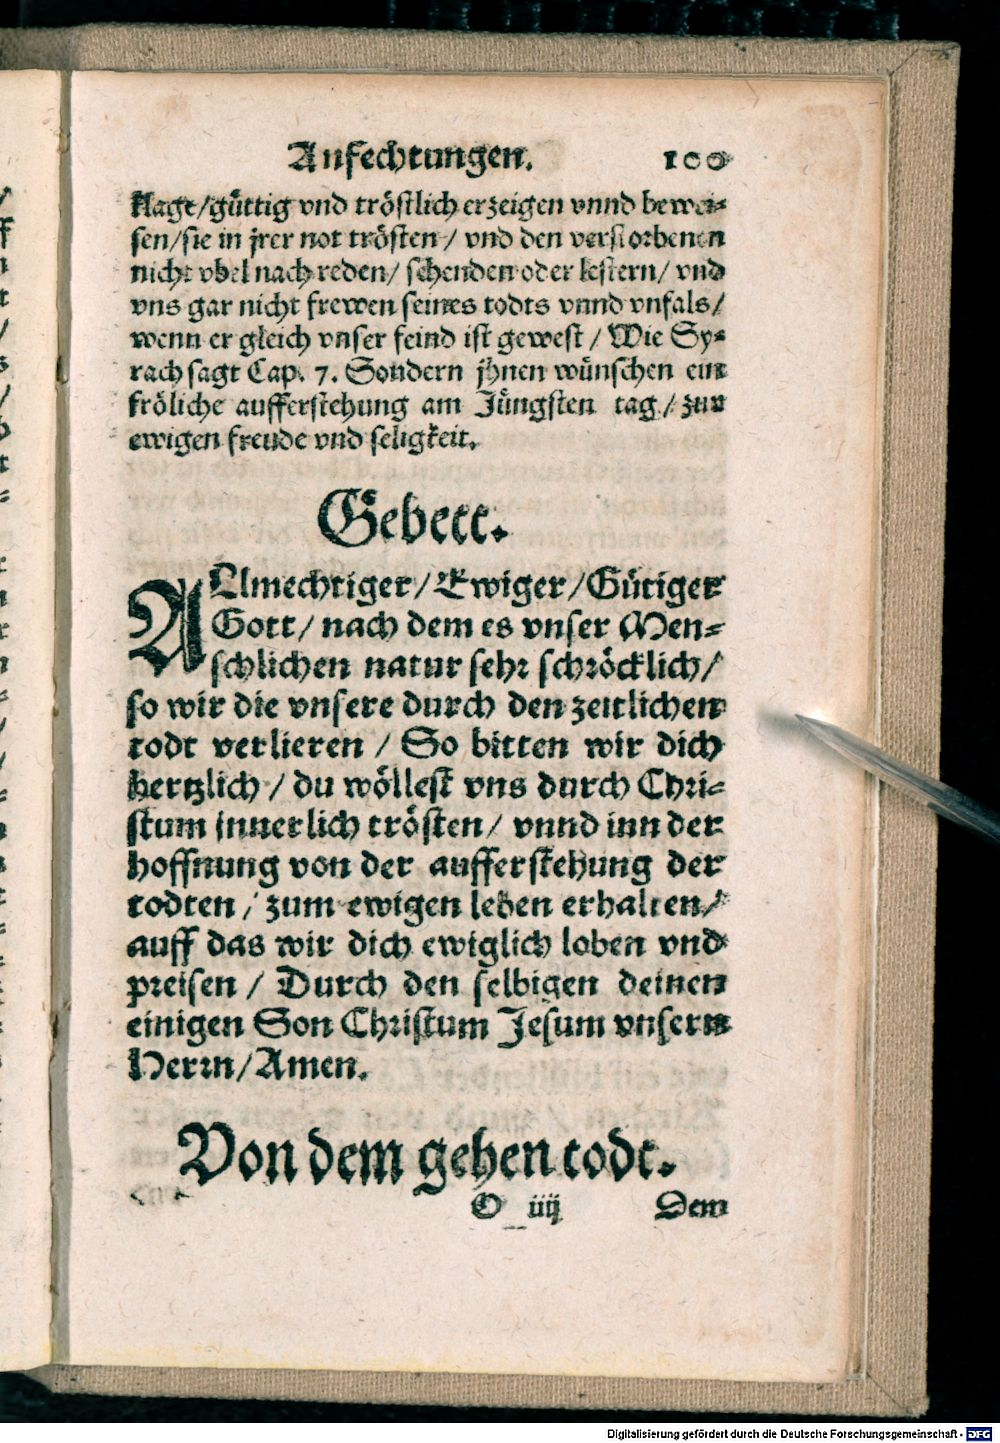 Anfechtungen. 100
klage/gůttig vnd tröstlich erzeigen vnnd bewei-
sen/sie in jrer not trösten/ vnd den verstorbenen
nicht vbel nach reden/ schenden oder lestern/ vnd
vns gar nicht frewen seines todts vnnd vnfals/
wenn er gleich vnser feind ist gewest / Wie Sy-
rach sagt Cap. 7. Sondern jhnen wünschen ein
fröliche aufferstehung am Jůngsten tag / zur
ewigen freude vnd seligkeit.
Gebett.
ALmechtiger/ Ewiger/ Gůtiger
Gott/ nach dem es vnser Men-
schlichen natur sehr schröcklich/
so wir die vnsere durch den zeitlichen
todt verlieren / So bitten wir dich
hertzlich / du wöllest vns durch Chri-
stum jnnerlich trösten/ vnnd inn der
hoffnung von der aufferstehung der
todten / zum ewigen leben erhalten/
auff das wir dich ewiglich loben vnd
preisen / Durch den selbigen deinen
einigen Son Christum Jesum vnsern
Herrn/ Amen.
Von dem gehen todt.
O iiij Dem
Digitalisierung gefördert durch die Deutsche Forschungsgemeinschaft - DFG